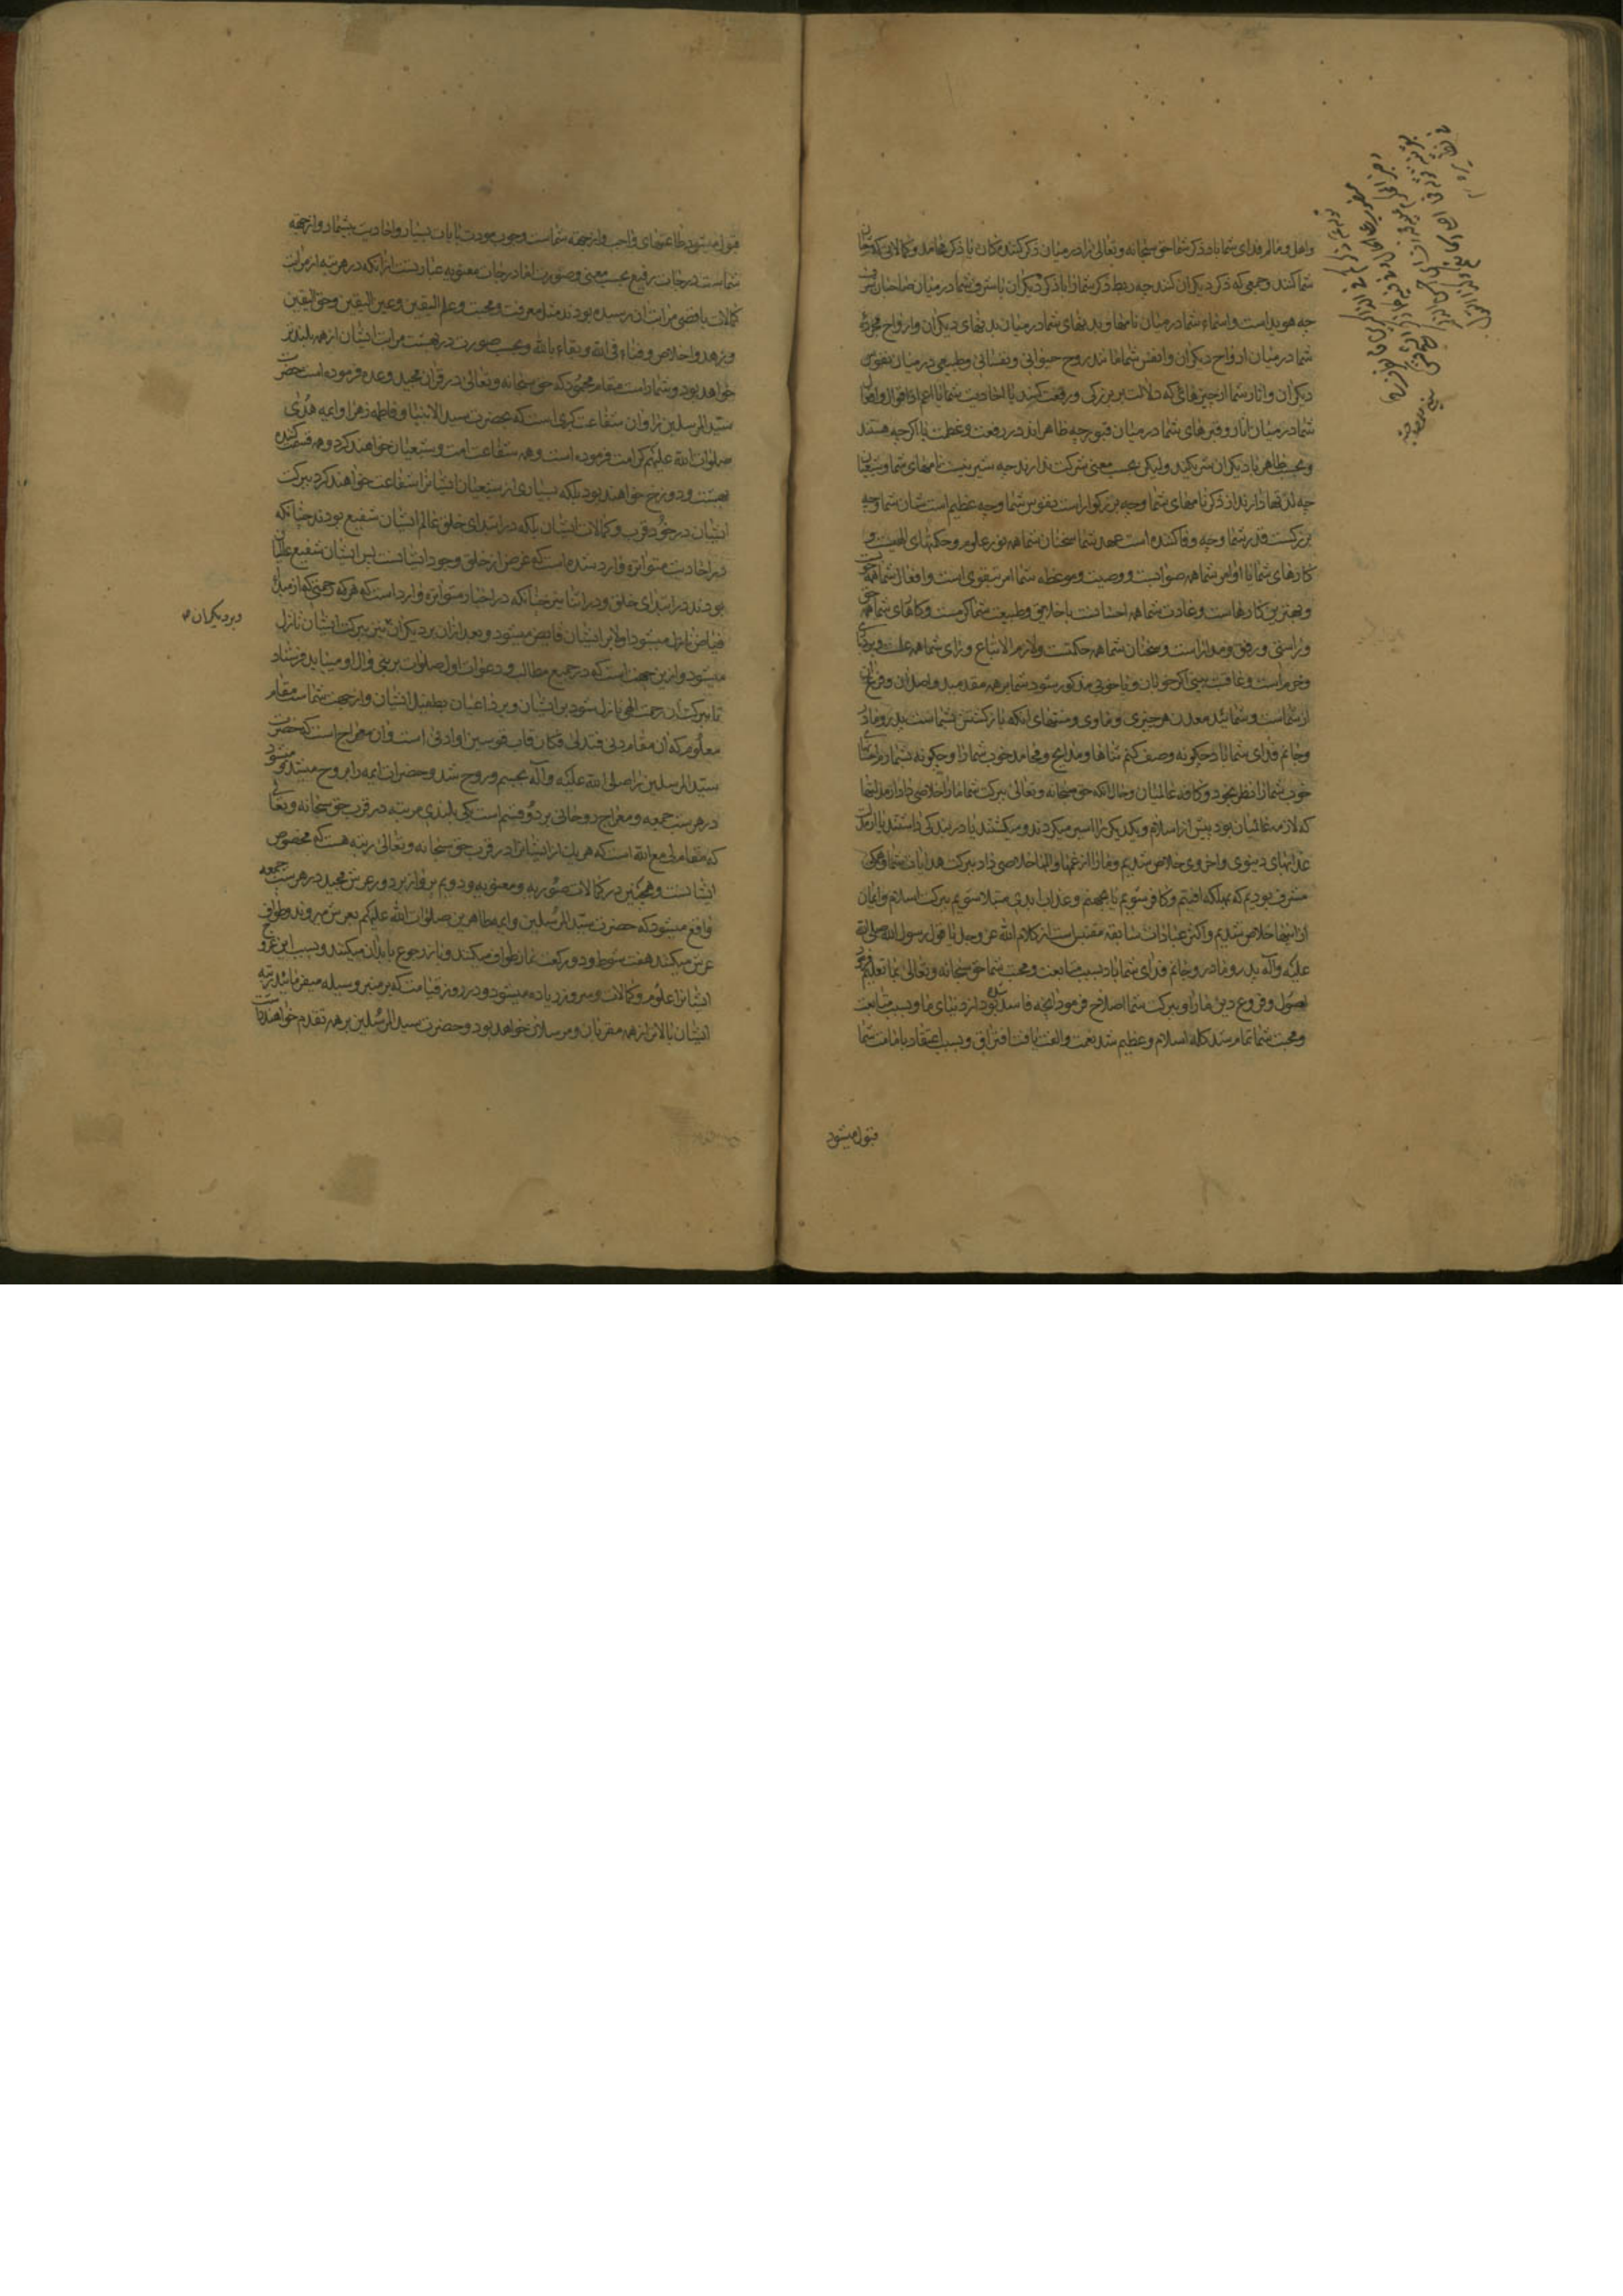 واهل و مالم فدای شما باد ذکر شما حق سبحانه و تعالی را در میان ذکر کنندکان یا ذکر محامد و کمالاتی که محبان
شما کنند و جمعی که ذکر دیکران کنند چه ربط ذکر شما را با ذکر دیکران یا شرف شما در میان صاحبان شرف
چه هویداست و اسماء شما در میان نامها و بدنهای شما در میان بدنهای دیکران و ارواح مجرده
شما در میان ارواح دیکران و انفس شما مانند روح حیوانی و نفسانی و طبیعی در میان نفوس
دیکران و اثار شما از چیزهائی که دلالت بر بزرکی و رفعت کنند یا احادیث شما یا اعم از اقوال و افعال
شما در میان اثار و قبرهای شما در میان قبور چه ظاهراند در رفعت و عظمت یا اکرچه هستند
و بحسب ظاهر با دیکران شریکند ولیکن بحسب معنی شرکت ندارند چه شیرینست نامهای شما و شیعیان
چه لذتها دارند از ذکر نامهای شما و چه بزرکوار است نفوس شما و چه عظیم است شان شما و چه
بزرکست قدر شما و چه وفا کننده است عهد شما سخنان شما همه نور علوم و حکمتهای الهیست و
کارهای شما یا اوامر شما همه صوابست و وصیت و موعظه شما امر بتقوی است و افعال شما همه خوبست
و بهترین کارهاست و عادت شما همه احسانست با خلایق و طبیعت شما کرمست و کارهای شما همه حق
و راستی و رفق و مداراست و سخنان شما همه حکمت و لازم الاتباع و رای شما همه علمست و بردباری
و حزم است و عاقبت بینی اکر خوبان و یا خوبی مذکور شود شما بر همه مقدمید و اصل ان و فرع ان
از شماست و شمائید معدن هر چیزی و ماوی و منتهای انکه بازکشتش بشماست پدر و مادر
و جانم فدای شما باد چکونه وصف کنم ثناها و مدایح و محامد خوب شما را و چکونه بشمارم احسانهای
خوب شما را نظر بخود و کافه عالمیان و حال انکه حق سبحانه و تعالی ببرکت شما ما را خلاصی داد از مذلتها
که لازمه عالمیان بود پیش از اسلام و یکدیکر را اسیر میکردند و میکشتند یا در بندکی داشتند یا از مذلت
عذابهای دنیوی و اخروی خلاص شدیم و ما را از غمها و المها خلاصی داد ببرکت هدایات شما و ممکن
مشرف بودیم که بهلکه افتیم و کافر شویم یا بجهنم و عذاب ابدی مبتلا شویم ببرکت اسلام و ایمان
از اینها خلاص شدیم و اکثر عبارات سابقه مقتبس است از کلام الله عز و جل یا قول رسول الله صلی الله
علیه و آله پدر و مادر و جانم فدای شما باد بسبب متابعت و محبت شما حق سبحانه و تعالی بما تعلیم فرمود
اصول و فروع دین ما را و ببرکت شما اصلاح فرمود انچه فاسد شده بود از دنیای ما و بسبب متابعت
و محبت شما تمام شد کلمه اسلام و عظیم شد نعمت و الفت یافت افتراق و بسبب اعتقاد بامامت شما
قبول میشود
قبول میشود طاعتهای واجب و از جهة شماست وجوب مودت بایات بسیار و احادیث بیشمار و از جهة
شماست درجات رفیع بحسب معنی و صورت اما درجات معنویه عبارتست از انکه در هر مرتبه از مراتب
کمالات باقصی مراتب ان رسیده بودند مثل معرفت و محبت و علم الیقین و عین الیقین و حق الیقین
و زهد و اخلاص و فناء فی الله و بقاء بالله و بحسب صورت در بهشت مراتب ایشان از همه بلندتر
خواهد بود و شما راست مقام محمود که حق سبحانه و تعالی در قران مجید وعده فرموده است حضرت
سید المرسلین را و ان شفاعت کبری است که بحضرت سید الانبیا و فاطمه زهرا و ایمه هدی
صلوات الله علیهم کرامت فرموده است و همه شفاعت امت و شیعیان خواهند کرد و همه قسمت کننده
بهشت و دوزخ خواهند بود بلکه بسیاری از شیعیان ایشان را شفاعت خواهند کرد ببرکت
ایشان در خور قرب و کمالات ایشان بلکه در ابتدای خلق عالم ایشان شفیع بودند چنانکه
در احادیث متواتره وارد شده است که غرض از خلق وجود ایشانست پس ایشان شفیع عالمیان
بودند در ابتدای خلق و در اثنا نیز چنانکه در اخبار متواتره وارد است که هر که رحمتی که از مبدا
فیاض نازل میشود اولا بر ایشان فایض میشود و بعد از ان بر دیکران نیز ببرکت ایشان نازل
و بر دیکران
میشود و ازین جهت است که در جمیع مطالب و دعوات اول صلوات بر نبی و آل او میباید فرستاد
تا ببرکت ان رحمت الهی نازل شود بر ایشان و بر داعیان بطفیل ایشان و از جهت شماست مقام
معلوم که ان مقام دنی فتدلی فکان قاب قوسین او ادنی است و ان معراج است که حضرت
سید المرسلین را صلی الله علیه و آله بجسم و روح شد و حضرات ایمه را بروح میشد و میشود
در هر شب جمعه و معراج روحانی بر دو قسم است یکی بلندی مرتبه در قرب حق سبحانه و تعالی
که مقام لی مع الله است که هر یک از ایشان را در قرب حق سبحانه و تعالی رتبه هست که مخصوص
ایشانست و همچنین در کمالات صوریه و معنویه و دویم پرواز بر دور عرش مجید در هر شب جمعه
واقع میشود که حضرت سید المرسلین و ایمه طاهرین صلوات الله علیهم بعرش میروند و طواف
عرش میکنند هفت شوط و دو رکعت نماز طواف میکنند و باز رجوع بابدان میکنند و بسبب این عروج
ایشان را علوم و کمالات و سرور زیاده میشود و در روز قیامت که بر منبر وسیله میفرمایند رتبه
ایشان بالاتر از همه مقربان و مرسلان خواهد بود و حضرت سید المرسلین بر همه تقدم خواهند داشت